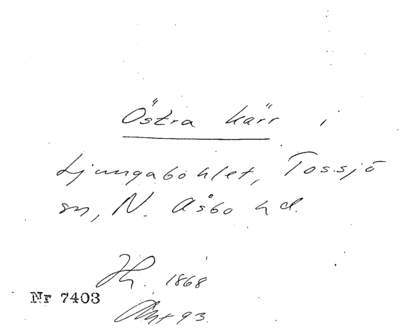 Östra kärr i
Ljungabohlet, Tossjö
sn, N. Åsbo hd.
1868
Nr 7403
93.